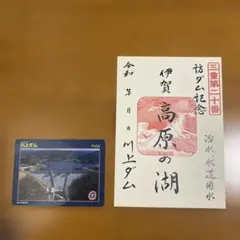 三重第二十番
訪ダム記念
治水、水道用水
伊賀
高原の湖
令和 年 月 日
川上ダム
川上ダム